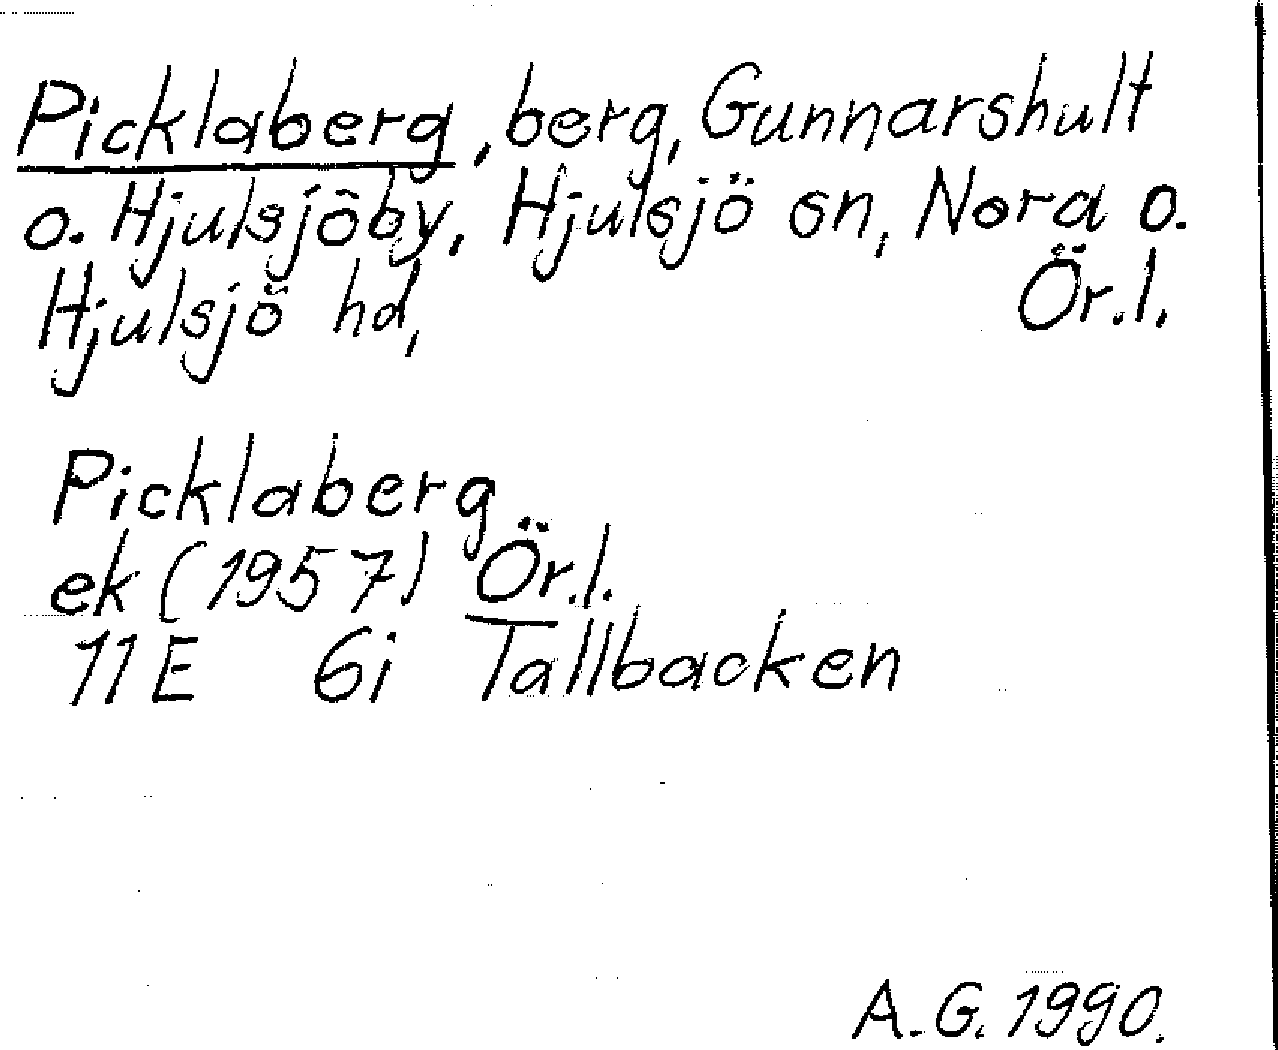 Picklaberg, berg, Gunnarshult
o. Hjulsjöby, Hjulsjö sn, Nora o.
Hjulsjö hd, Ör.l.
Picklaberg
ek (1957) Ör.l.
11E 6i Tallbacken
A.G. 1990.